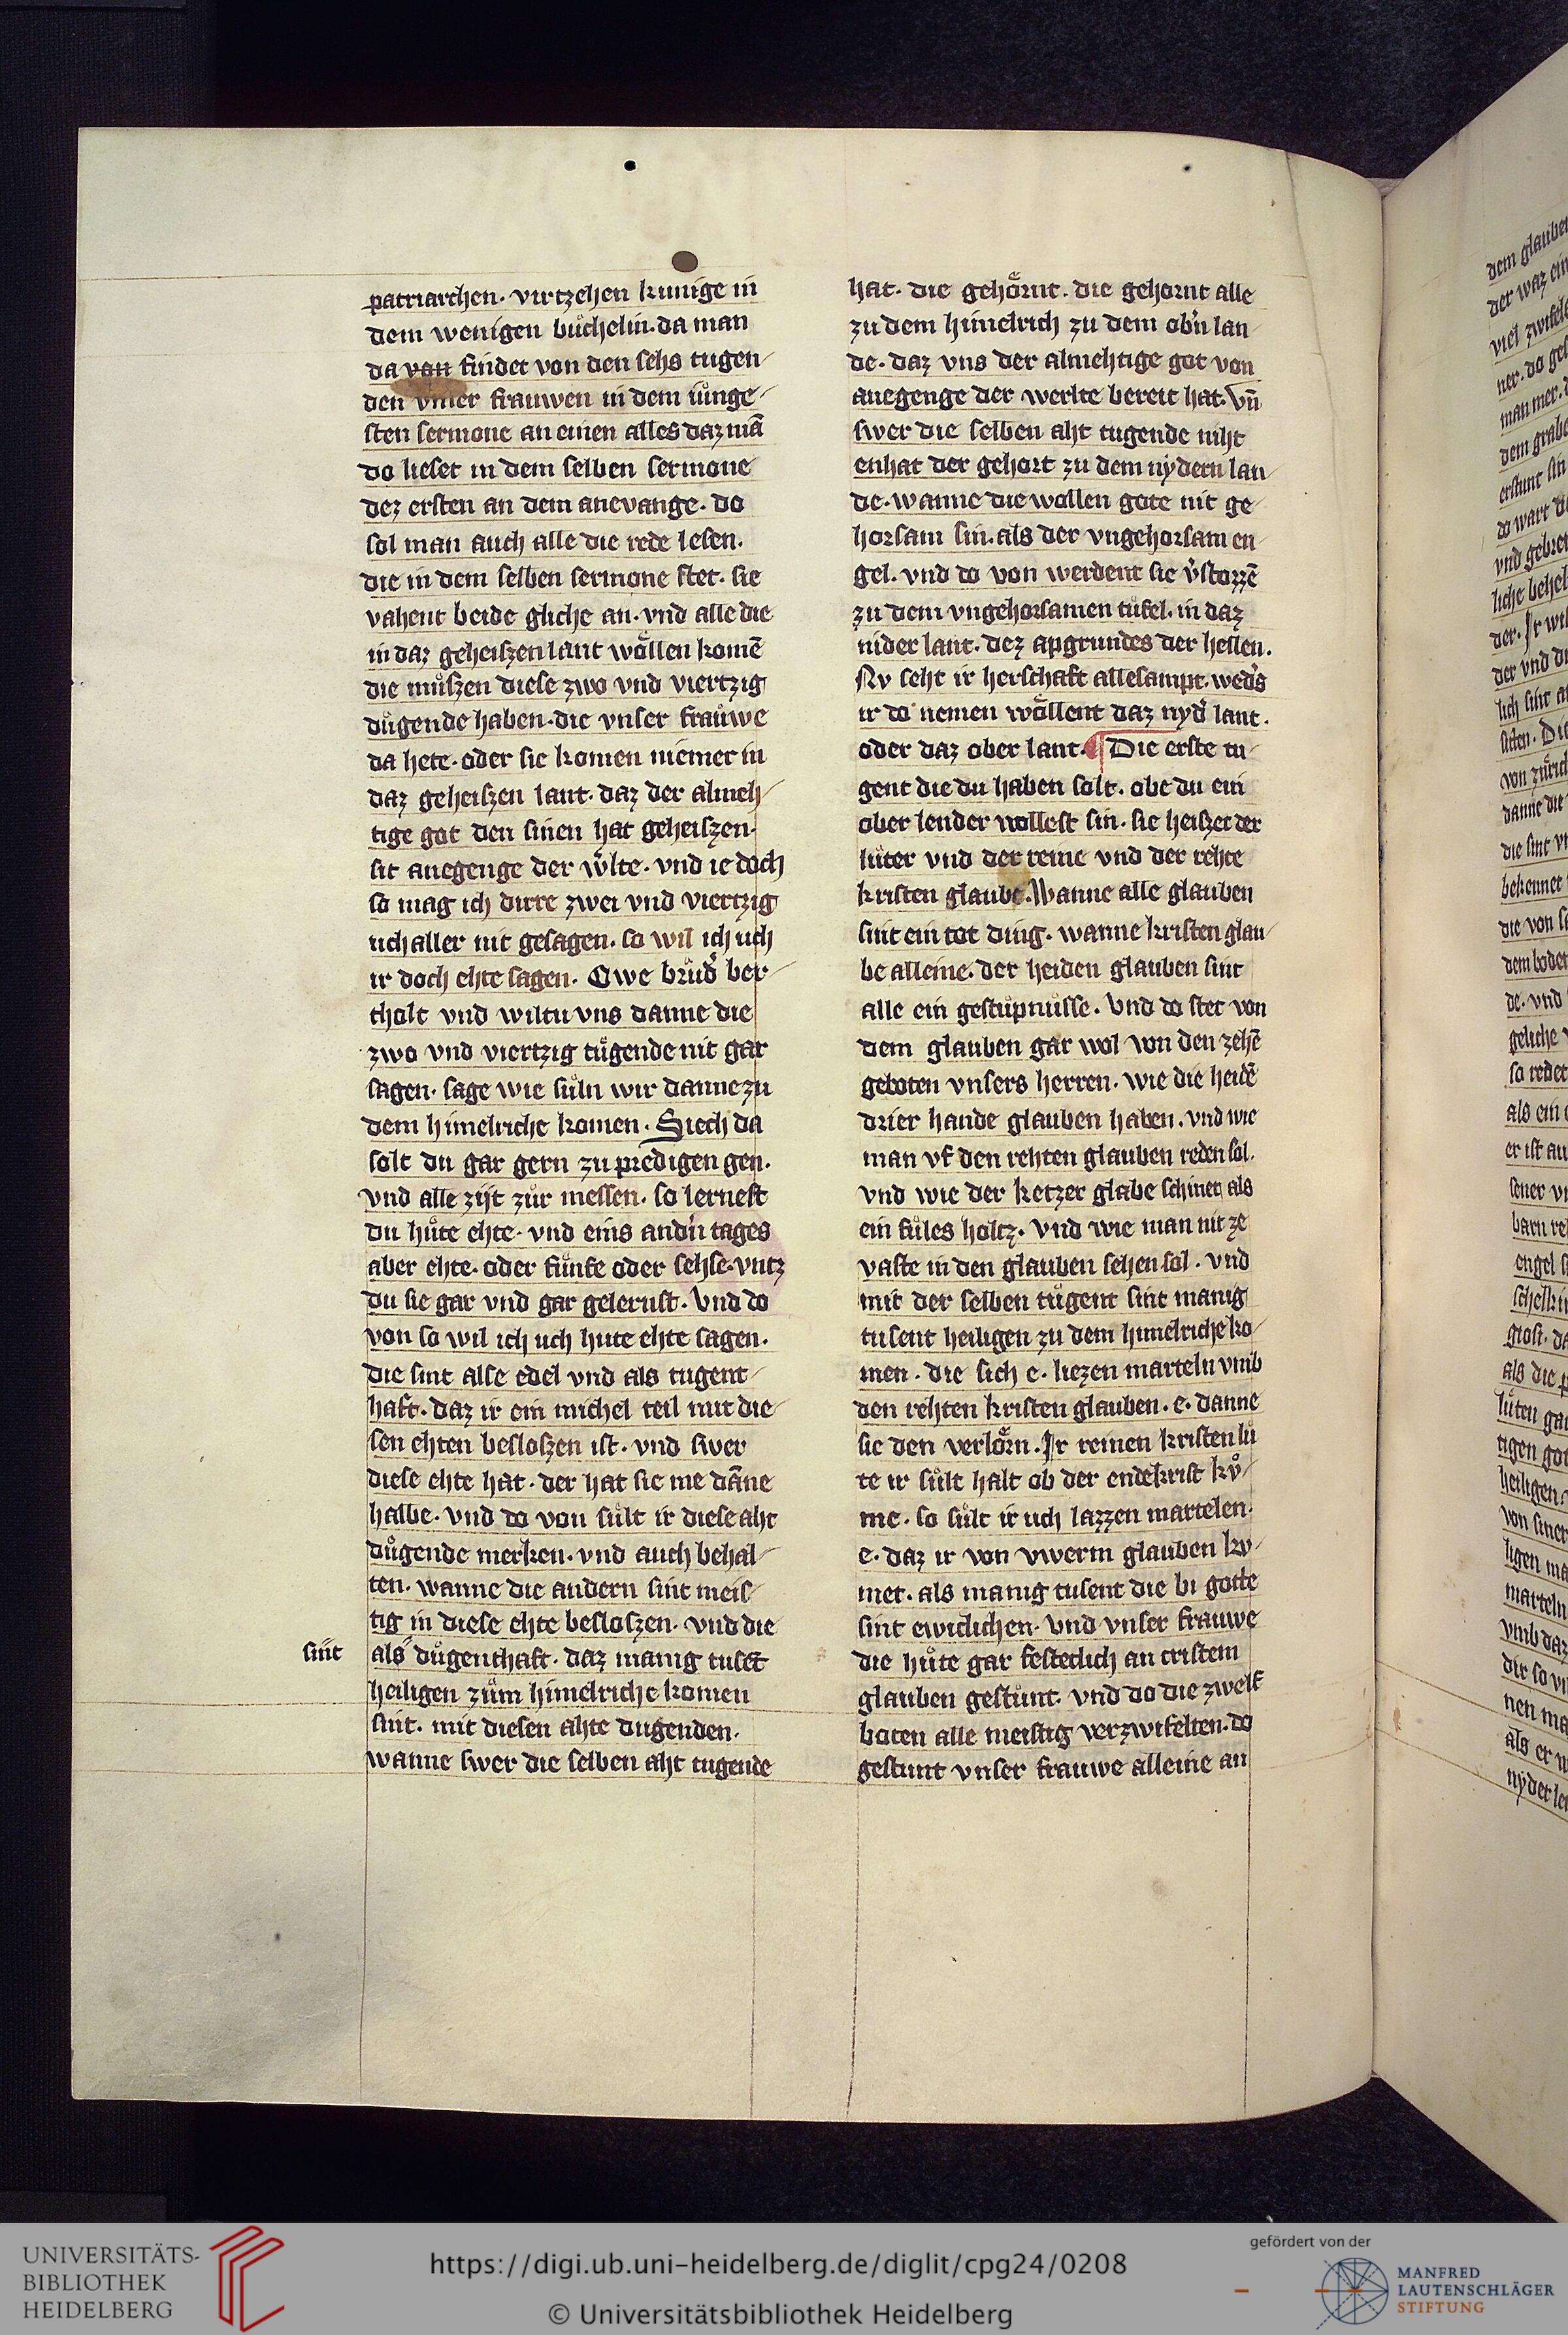 patriarchen. virtzehen kunige in
dem wenigen buͤchelin. da man
da van findet von den sehs tugen
den vnser frauwen in dem iunge
sten sermone an einen alles daz mā
do lieset in dem selben sermone
dez ersten an dem anevange. do
sol man auch alle die rede lesen.
die in dem selben sermone stet. sie
vahent beide gliche an. vnd alle die
in daz geheiszen lant woͤllen komē
die muͤszen diese zwo vnd viertzig
duͤgende haben. die vnser frauwe
da hete. oder sie komen niemer in
daz geheiszen lant. daz der almeh
tige got den sinen hat geheiszen.
sit anegenge der w̓lte. vnd ie doch
so mag ich dirre zwei vnd viertzig
uch aller nit gesagen. so wil ich uch
ir doch ehte sagen. Owe bruͦd̓ ber
tholt vnd wiltu vns danne die
zwo vnd viertzig tuͤgende nit gar
sagen. sage wie suͤln wir danne zu
dem himelriche komen. Siech da
solt du gar gern zu predigen gen.
vnd alle zijt zuͦr messen. so lernest
du huͤte ehte. vnd eins and̓n tages
aber ehte. oder fuͤnfe oder sehse. vntz
du sie gar vnd gar gelernst. Vnd do
von so wil ich uch hute ehte sagen.
die sint alse edel vnd als tugent
haft. daz ir ein michel teil mit die
sen ehten besloszen ist. vnd swer
diese ehte hat. der hat sie me dāne
halbe. vnd do von suͤlt ir diese aht
duͤgende merken. vnd auch behal
ten. wanne die andern sint meis
tig in diese ehte besloszen. vnd die
sint
als duͤgenthaft. daz manig tusēt
heiligen zuͦm himelriche komen
sint. mit diesen ahte dugenden.
wanne swer die selben aht tugende
hat. die gehoͤrnt. die gehornt alle
zu dem himelrich zu dem ob̓n lan
de. daz vns der almehtige got von
anegenge der werlte bereit hat. Vn̄
swer die selben aht tugende niht
enhat der gehort zu dem nydern lan
de. wanne die wollen gote nit ge
horsam sin. als der vngehorsam en
gel. vnd do von werdent sie v̓stozzē
zu dem vngehorsamen tuͤfel. in daz
nider lant. dez apgrundes der hellen.
Nv seht ir herschaft allesampt. wed̓s
ir do nemen woͤllent daz nyd̓ lant.
oder daz ober lant. ¶ Die erste tu
gent die du haben solt. obe du ein
ober lender wollest sin. sie heiszet der
luͤter vnd der reine vnd der rehte
kristen glaube. Wanne alle glauben
sint ein tot ding. wanne kristen glau
be alleine. der heiden glauben sint
alle ein gestuͤpnuͤsse. Vnd do stet von
dem glauben gar wol von den zehē
geboten vnsers herren. wie die heidē
drier hande glauben haben. vnd wie
man vf den rehten glauben reden sol.
vnd wie der ketzer glabe schinet als
ein fuͤles holtz. Vnd wie man nit ze
vaste in den glauben sehen sol. vnd
mit der selben tuͤgent sint manig
tusent heiligen zu dem himelriche ko
men. die sich e. liezen marteln vmb
den rehten kristen glauben. e. danne
sie den verloͤrn. Ir reinen kristen luͤ
te ir suͤlt halt ob der endekrist kuͦ
me. so suͤlt ir uch lazzen martelen.
e. daz ir von vwerm glauben ko
met. als manig tusent die bi gotte
sint ewiclichen. Vnd vnser frauwe
die huͤte gar festeclich an cristem
glauben gestuͦnt. vnd do die zwelf
boten alle meistig verzwifelten. do
gestunt vnser frauwe alleine an
UNIVERSITÄTS-
BIBLIOTHEK
HEIDELBERG
https://digi.ub.uni-heidelberg.de/diglit/cpg24/0208
© Universitätsbibliothek Heidelberg
gefördert von der
MANFRED
LAUTENSCHLÄGER
STIFTUNG